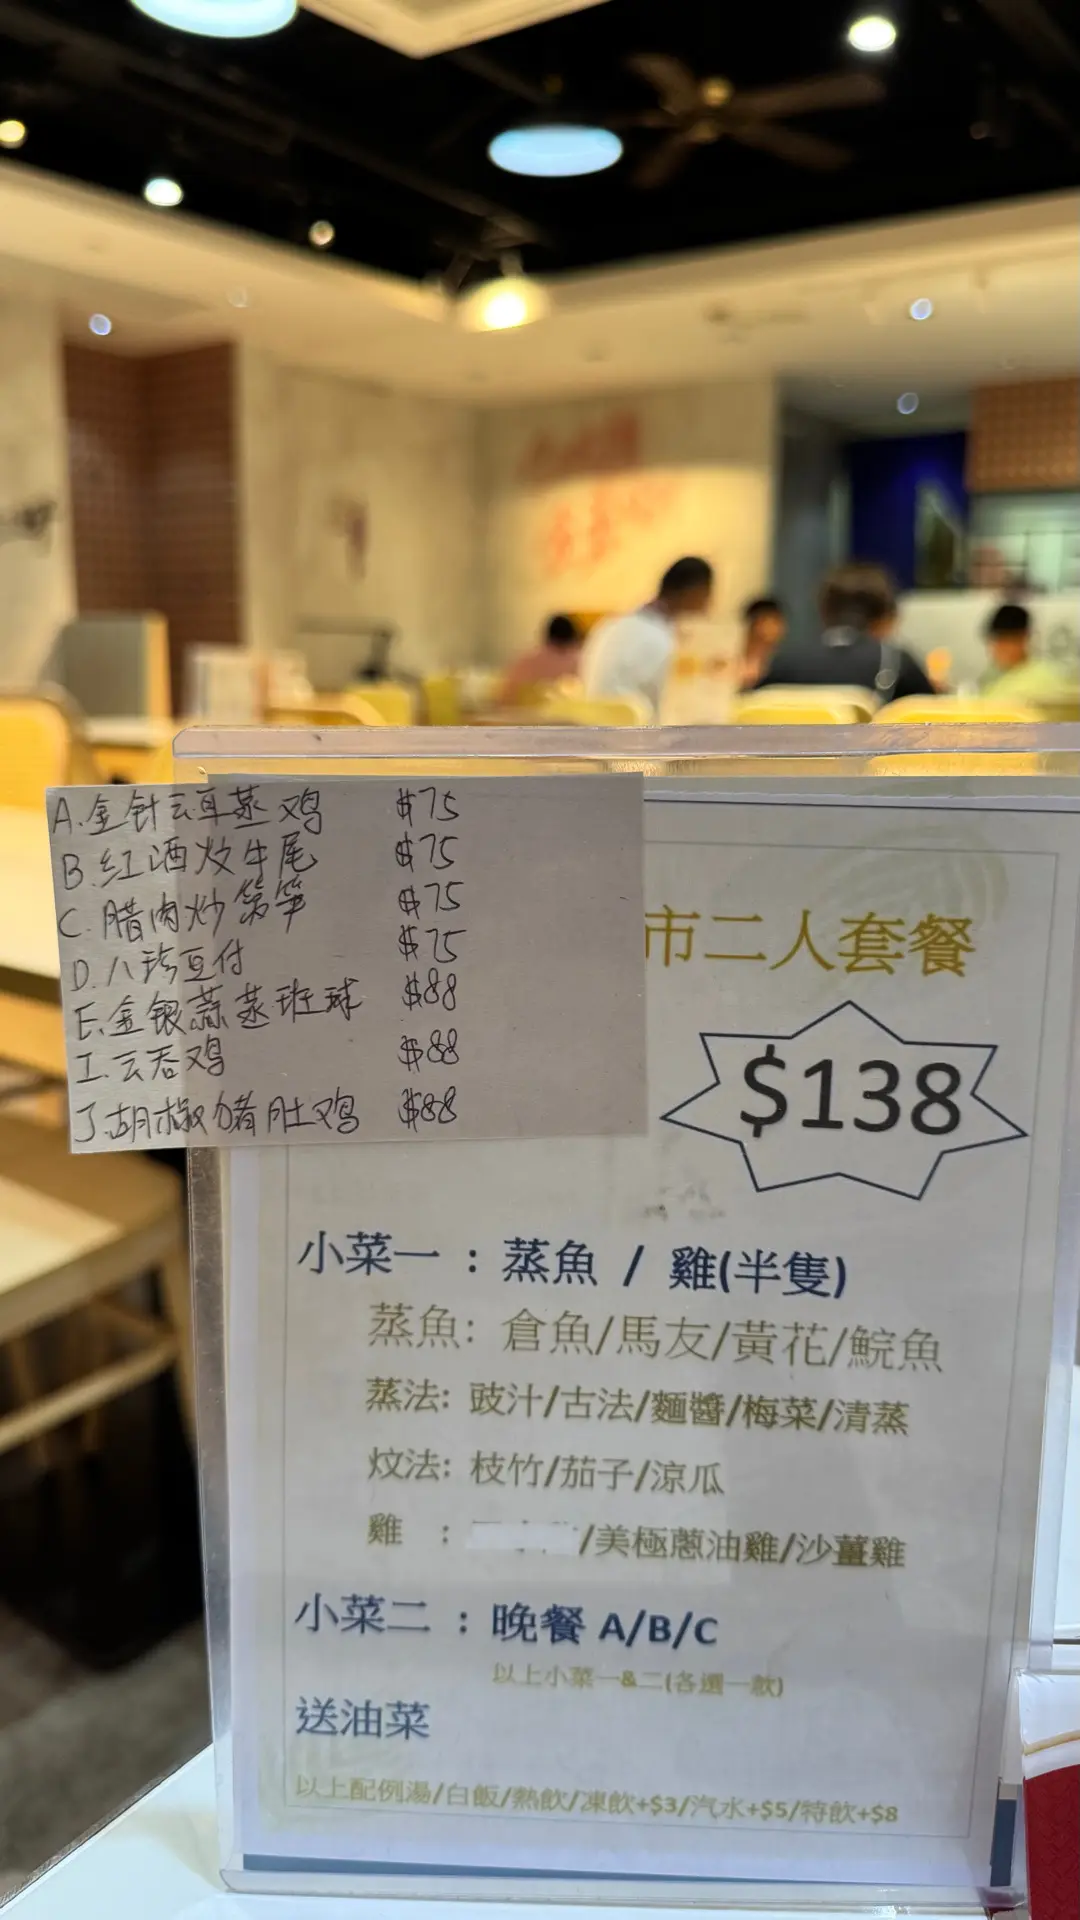 A.金针云耳蒸鸡 $75
B.红酒炆牛尾 $75
C.腊肉炒笋 $75
D.八珍豆付 $75
E.金银蒜蒸班球 $88
I.云吞鸡 $88
J.胡椒猪肚鸡 $88
市二人套餐
$138
小菜一 : 蒸魚 / 雞(半隻)
蒸魚: 倉魚/馬友/黃花/鯇魚
蒸法: 豉汁/古法/麵醬/梅菜/清蒸
炆法: 枝竹/茄子/涼瓜
雞 : /美極蔥油雞/沙薑雞
小菜二 : 晚餐 A/B/C
以上小菜一&二(各選一款)
送油菜
以上配例湯/白飯/熱飲/凍飲+$3/汽水+$5/特飲+$8